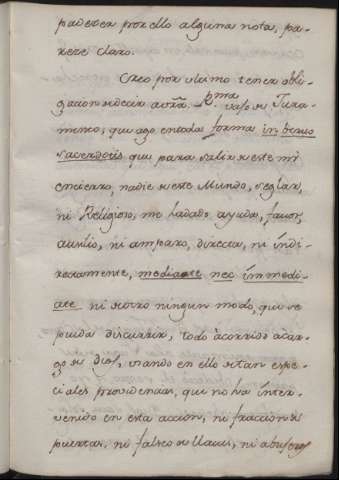 padecer por ello alguna nota, pa-
rece claro.
Creo por ultimo tener obli-
gacion de decir a vra Rma vajo de Jura-
mento, que ago en toda forma in verbo
sacerdotis que para salir de este mi
encierro, nadie de este Mundo, seglar,
ni Religioso, me ha dado ayuda, favor,
auxilio, ni amparo, directa, ni indi-
rectamente, mediate nec immedi-
ate ni de otro ningun modo, que se
pueda discurrir, todo à corrido à car-
go de Dios, usando en ello de tan espe-
ciales providencias, que no ha inter-
venido en esta accion, ni fraccion de
puertas, ni falseo de llaves, ni